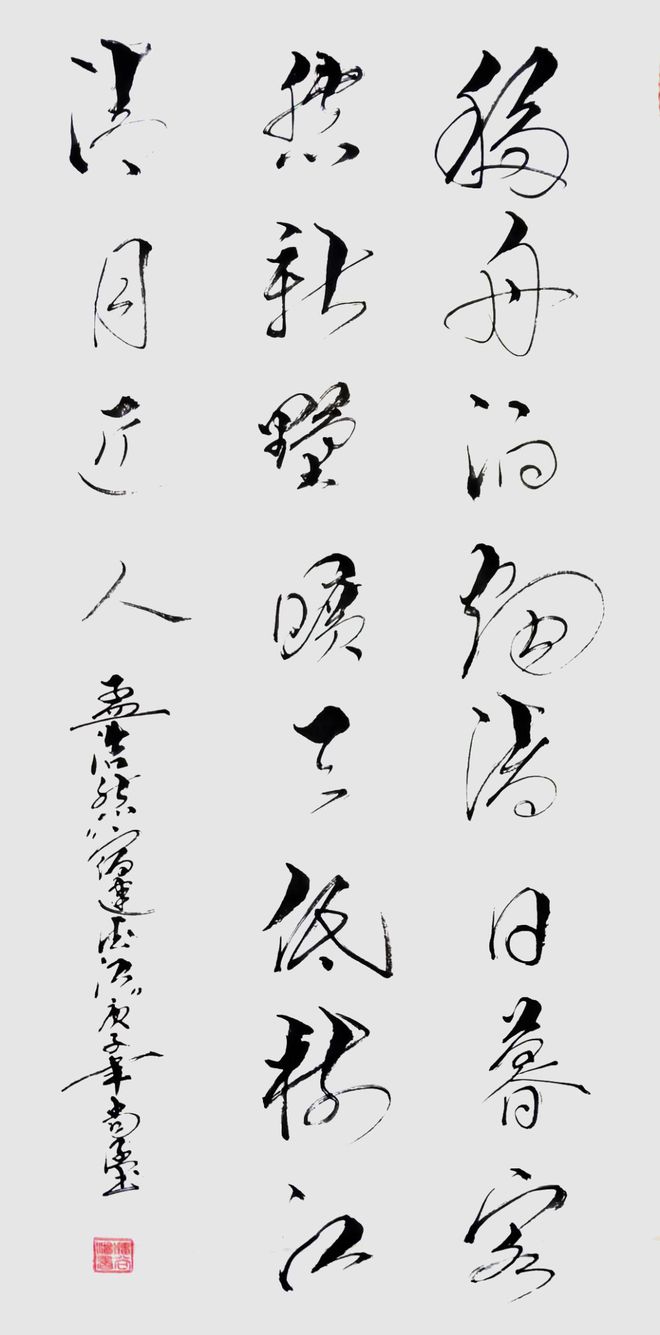 移舟泊烟渚日暮客
愁新野曠天低樹江
清月近人
孟浩然"宿建德江"庚子年尚墨